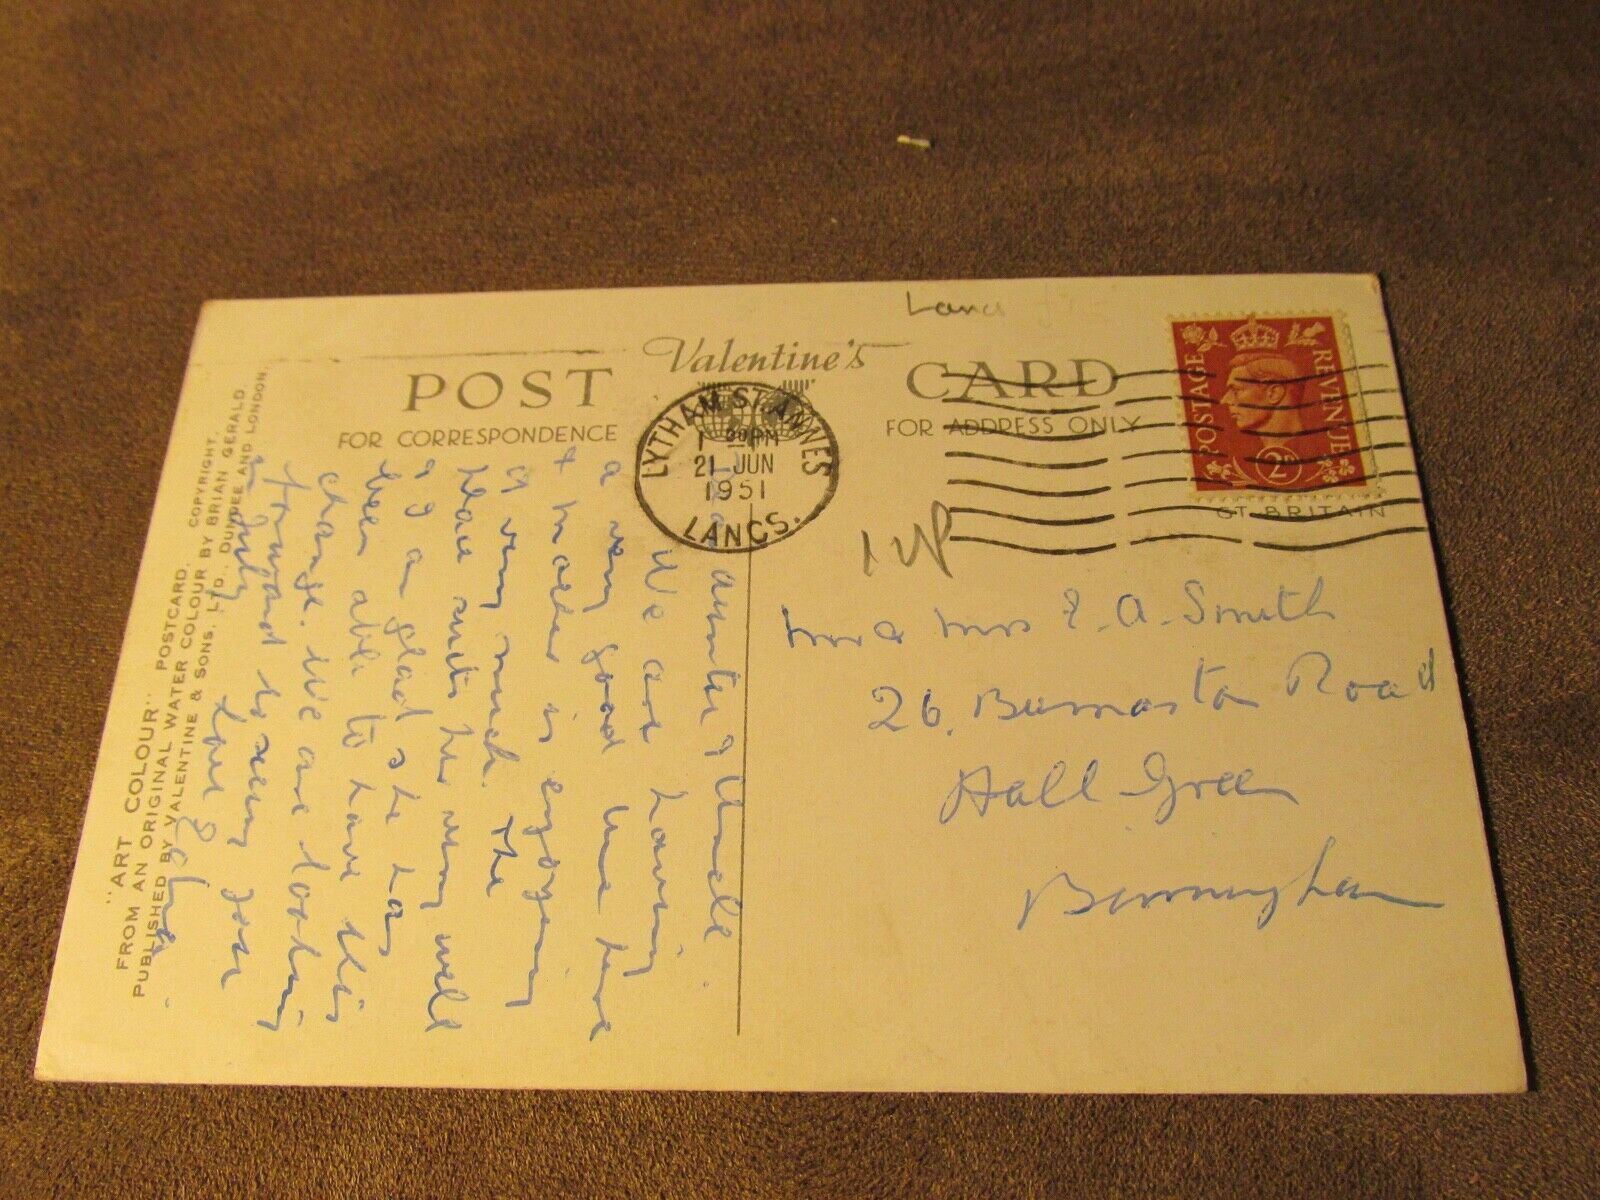 Lancs
Valentine's
POST CARD
FOR CORRESPONDENCE
FOR ADDRESS ONLY
LYTHAM ST. ANNES
1 30 PM
21 JUN
1951
LANCS.
POSTAGE REVENUE
2D
GT BRITAIN
"ART COLOUR" POSTCARD.
FROM AN ORIGINAL WATER COLOUR BY BRIAN GERALD
PUBLISHED BY VALENTINE & SONS, LTD., DUNDEE AND LONDON.
COPYRIGHT.
Auntie & Uncle.
We are having
a very good time here
& Mother is enjoying
it very much. The
place suits her very well
& I am glad she has
been able to have this
change. We are looking
forward to seeing you
in July.
Love Edna.
Mr & Mrs E. A. Smith
26, Burnaston Road
Hall Green
Birmingham